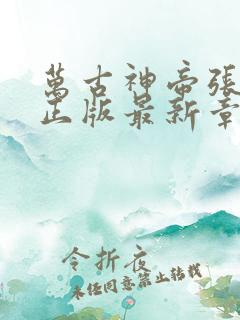 萬古神帝張
正版最新章
令折夜
未经同意禁止转载